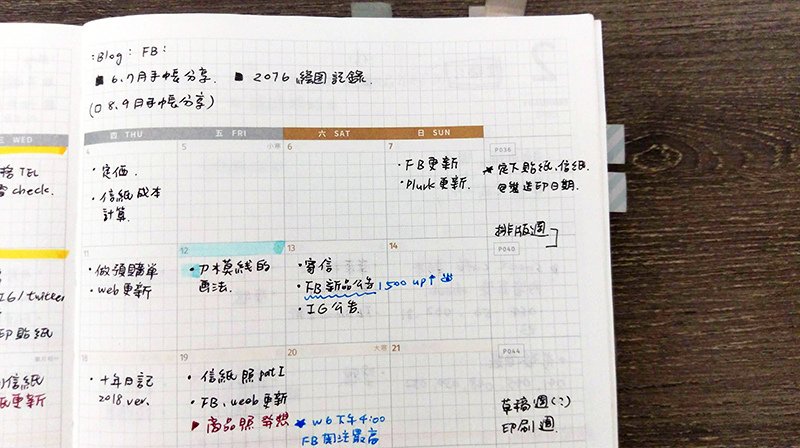 :Blog: FB:
■ 6.7月手帳分享. ■ 2076 繪圖記錄.
(□ 8.9月手帳分享)
三 WED
四 THU
五 FRI
六 SAT
日 SUN
TEL
check.
IG/twitter
印貼紙
信紙
更新
4
・定価.
・信紙成本
計算.
5 小寒
6
7
・FB更新
・Plurk更新.
P036
★定下貼紙、信紙
送印日期.
排版週.
P040
11
・做預購單
・web更新
12
・刀木莫线的
画法.
13
・寄信
・FB新品公告 1500 up↑
・IG公告.
14
18
・十年日記
2018 ver.
19
・信紙照 part I
・FB、web更新
▶商品照發想
20 大寒
★w6下午4:00
FB関注最高
21
P044
草稿週(?)
印刷週.
2